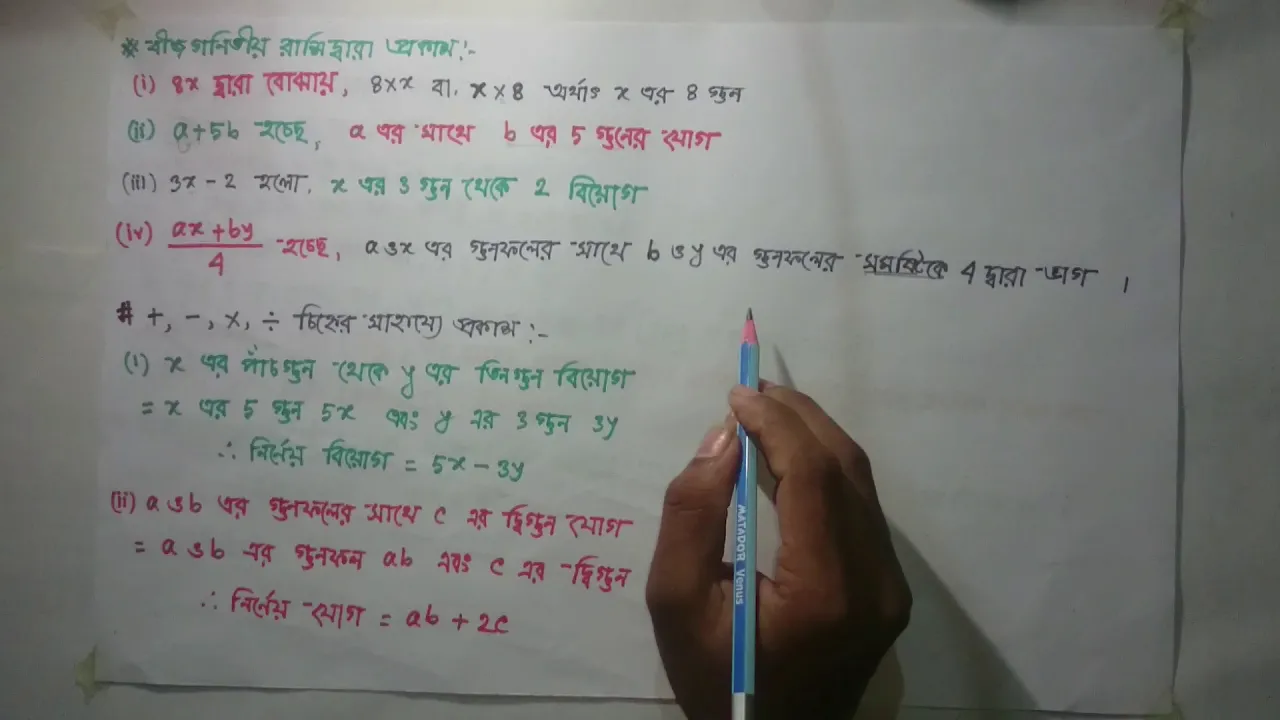 * বীজগনিতীয় রাশি দ্বারা প্রকাশ:-
(i) 8x দ্বারা বোঝায়, 8×x বা, x×8 অর্থাৎ x এর 8 গুন
(ii) a+5b হচ্ছে, a এর সাথে b এর 5 গুনের যোগ
(iii) 3x-2 হলো, x এর 3 গুন থেকে 2 বিয়োগ
(iv) (ax+by)/4 হচ্ছে, a ও x এর গুনফলের সাথে b ও y এর গুনফলের সমষ্টিকে 4 দ্বারা ভাগ ।
# +, -, ×, ÷ চিহ্নের সাহায্যে প্রকাশ:-
(i) x এর পাঁচগুন থেকে y এর তিনগুন বিয়োগ
= x এর 5 গুন 5x এবং y এর 3 গুন 3y
∴ নির্নেয় বিয়োগ = 5x-3y
(ii) a ও b এর গুনফলের সাথে c এর দ্বিগুন যোগ
= a ও b এর গুনফল ab এবং c এর দ্বিগুন
∴ নির্নেয় যোগ = ab + 2c
MATADOR Venus